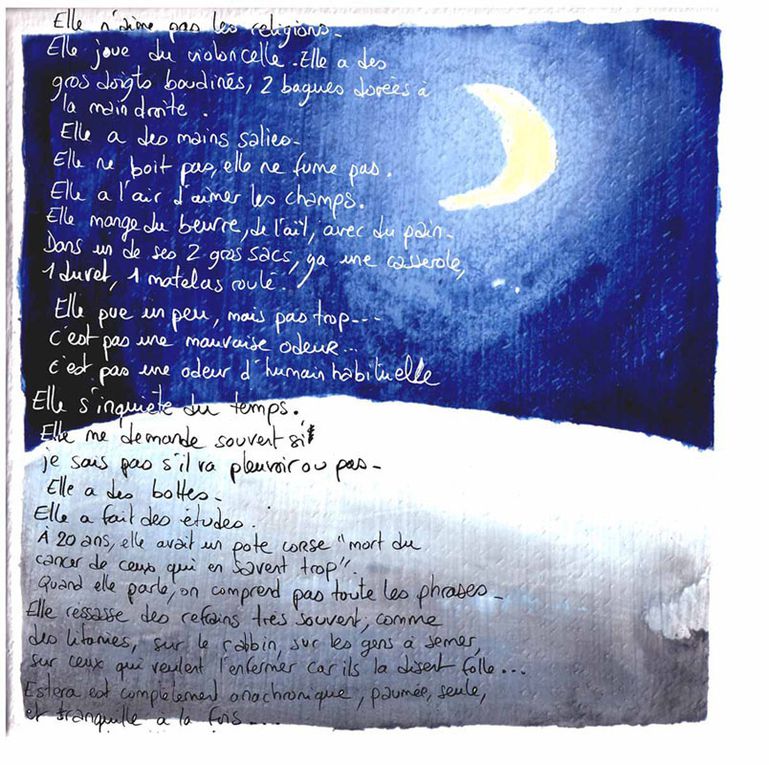 Elle n'aime pas les religions-
Elle joue du violoncelle. Elle a des
gros doigts boudinés, 2 bagues dorées à
la main droite.
Elle a des mains salies-
Elle ne boit pas, elle ne fume pas.
Elle a l'air d'aimer les champs.
Elle mange du beurre, de l'aïl, avec du pain-
Dans un de ses 2 gros sacs, ya une casserole,
1 duvet, 1 matelas roulé.
Elle pue un peu, mais pas trop---
c'est pas une mauvaise odeur...
c'est pas une odeur d'humain habituelle
Elle s'inquiète du temps.
Elle me demande souvent si
je sais pas s'il va pleuvoir ou pas-
Elle a des bottes-
Elle a fait des études.
À 20 ans, elle avait un pote corse "mort du
cancer de ceux qui en savent trop".
Quand elle parle, on comprend pas toute les phrases-
Elle ressasse des refrains très souvent, comme
des litanies, sur le rabbin, sur les gens à semer,
sur ceux qui veulent l'enfermer car ils la disent folle...
Estera est complètement anachronique, paumée, seule,
et tranquille a la fois...